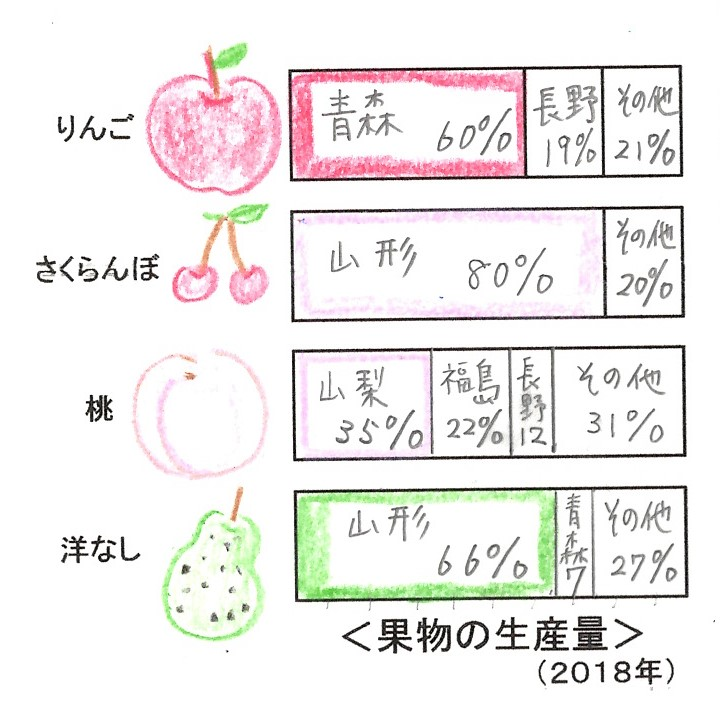 りんご
青森 60%
長野 19%
その他 21%
さくらんぼ
山形 80%
その他 20%
桃
山梨 35%
福島 22%
長野 12
その他 31%
洋なし
山形 66%
青森 7
その他 27%
＜果物の生産量＞
（2018年）